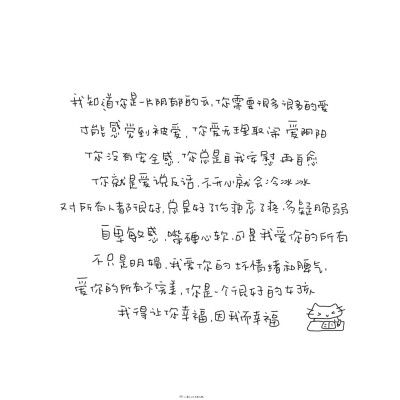 我知道你是一片阴郁的云,你需要很多很多的爱
才能感觉到被爱,你爱无理取闹 爱阴阳
你没有安全感,你总是自我安慰 再自愈
你就是爱说反话,不开心就会冷冰冰
对所有人都很好,总是好了伤疤忘了疼,多疑脆弱
自卑敏感,嘴硬心软,可是我爱你的所有
不只是明媚,我爱你的坏情绪和脾气,
爱你的所有不完美,你是一个很好的女孩
我得让你幸福,因我而幸福